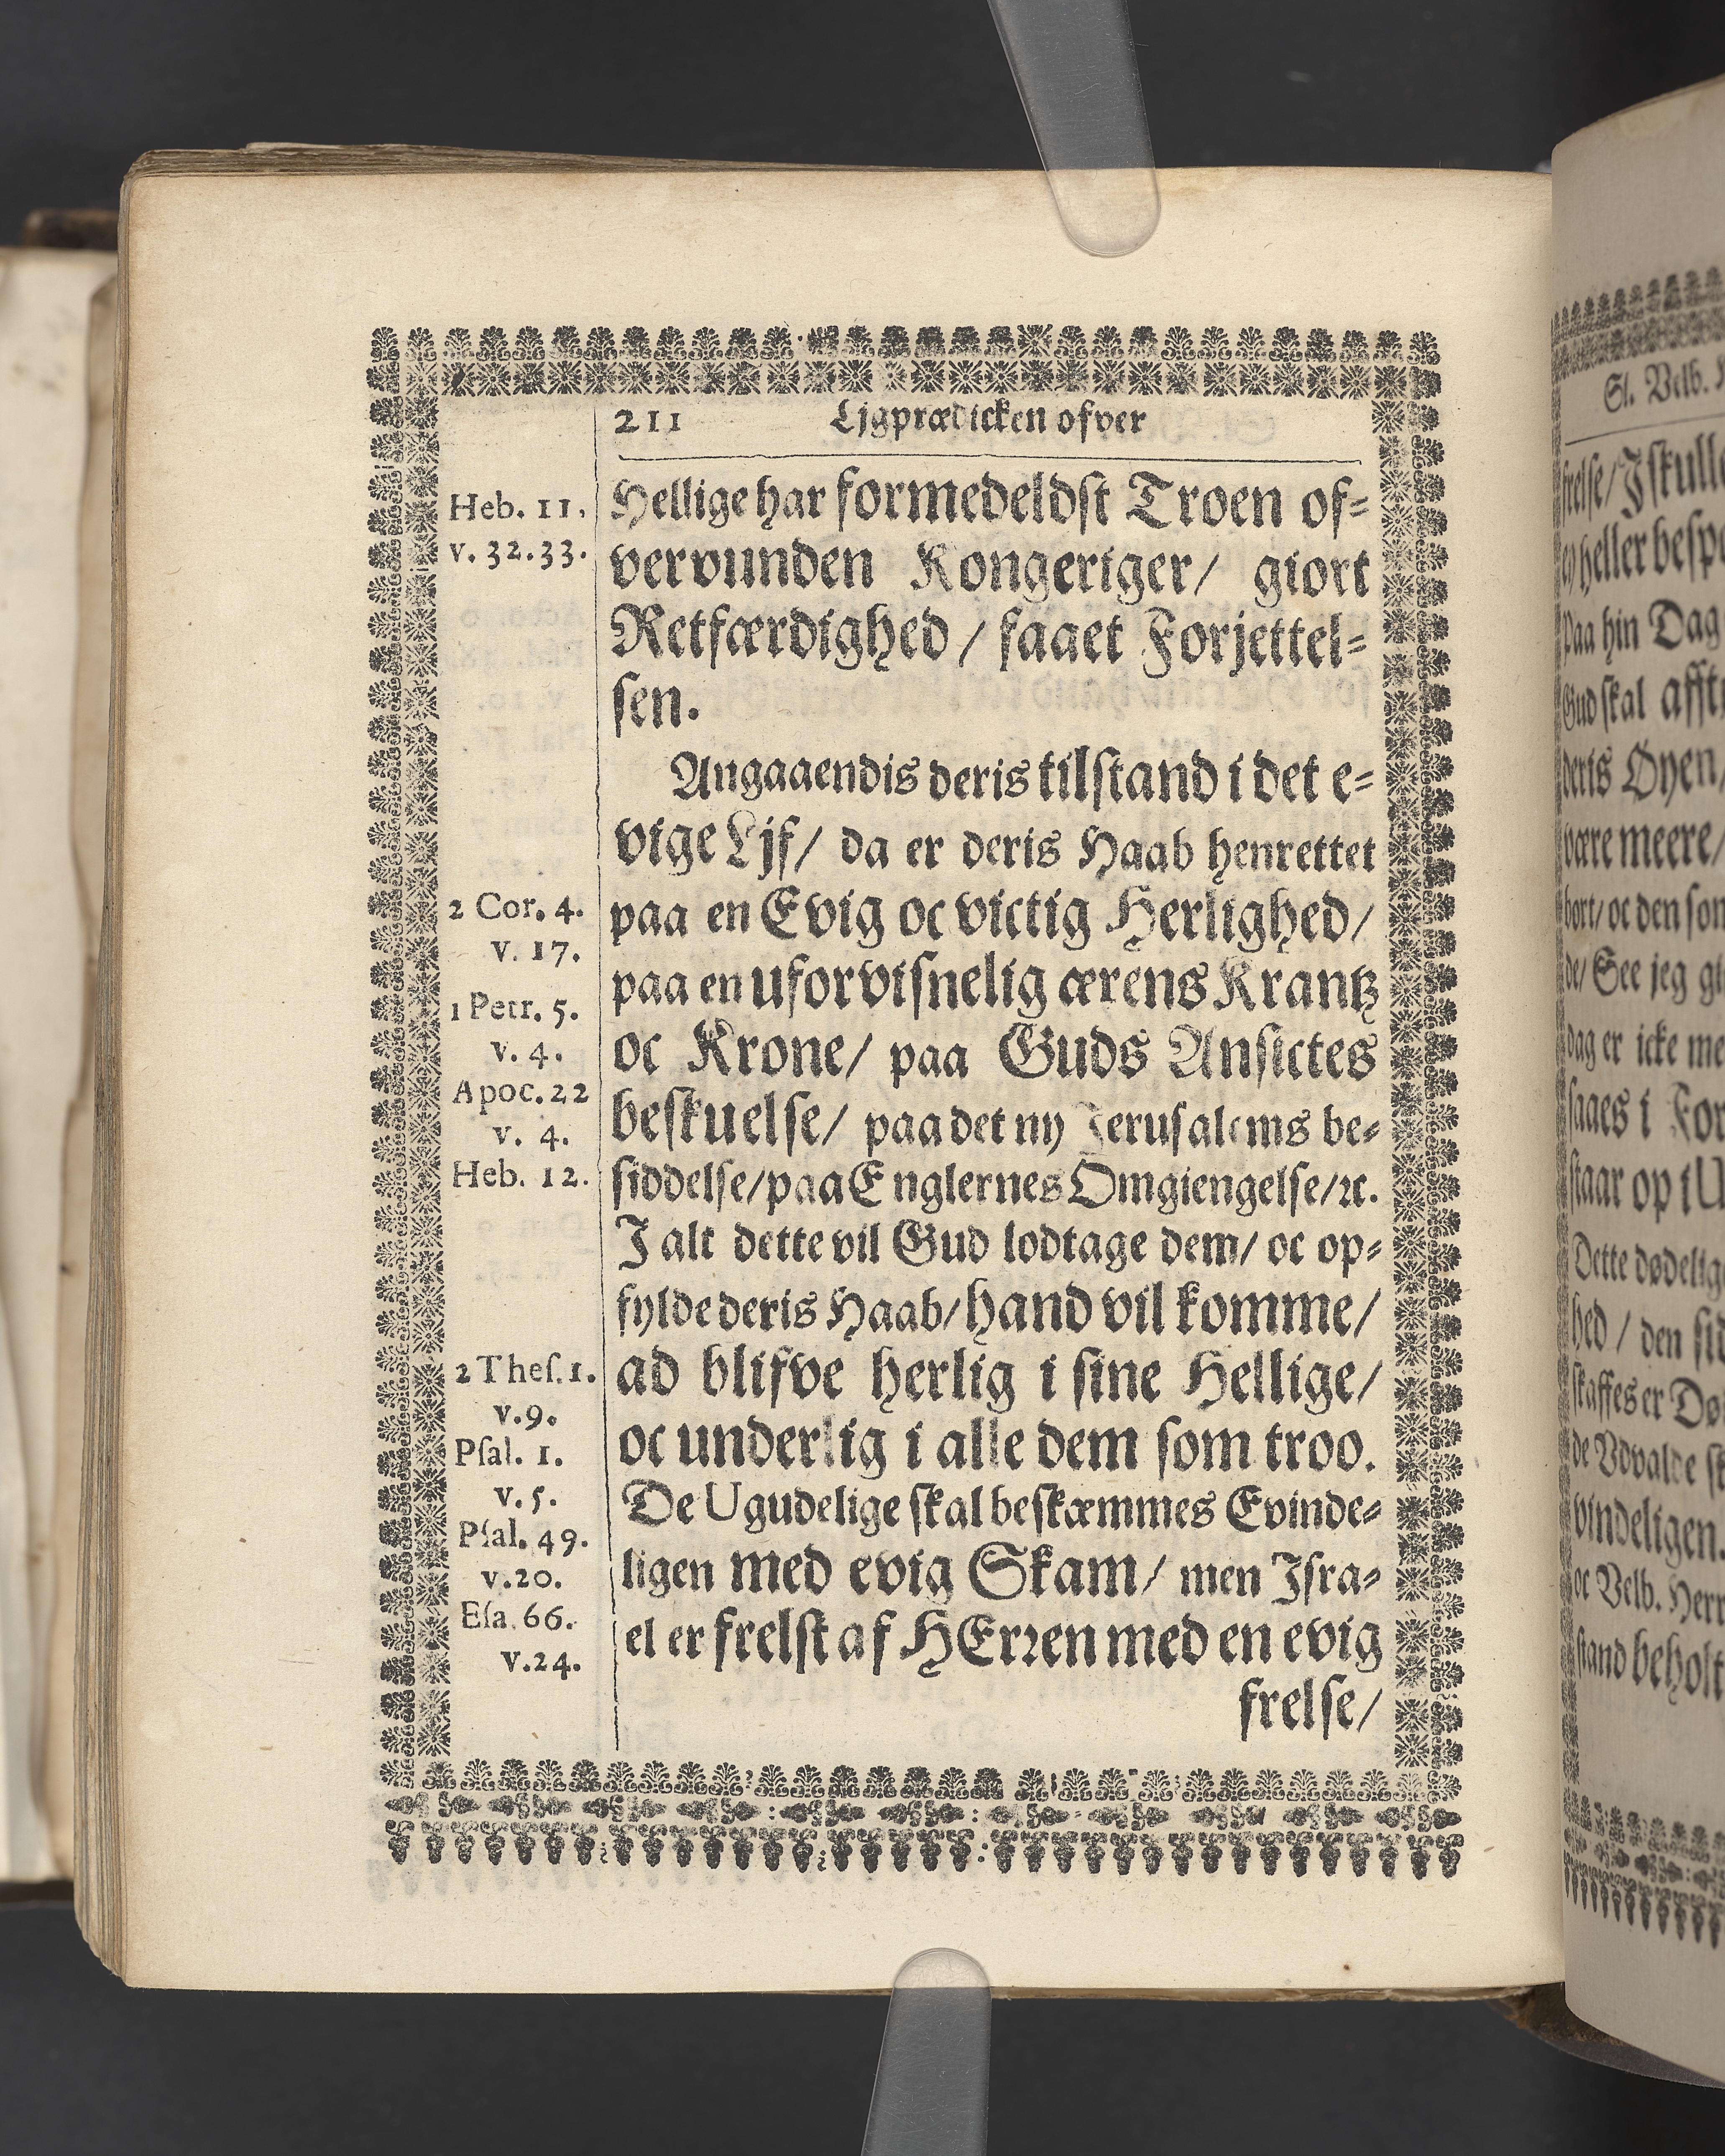 211 Ljgprædicken ofver
Heb. 11.
v. 32.33.
2 Cor. 4.
v. 17.
1 Petr. 5.
v. 4.
Apoc. 22
v. 4.
Heb. 12.
2 Theſ. 1.
v.9.
Pſal. 1.
v. 5.
Pſal. 49.
v.20.
Eſa. 66.
v.24.
Hellige har formedeldſt Troen of⸗
vervunden Kongeriger/ giort
Retfærdighed / faaet Forjettel⸗
ſen.
Angaaendis deris tilſtand i det e⸗
vige Ljf/ da er deris Haab henrettet
paa en Evig oc victig Herlighed/
paa en uforviſnelig ærens Krantz
oc Krone/ paa Guds Anſictes
beſkuelſe/ paa det ny Jeruſalems be⸗
ſiddelſe/ paa Englernes Omgiengelſe/ ꝛc.
J alt dette vil Gud lodtage dem/ oc op⸗
fylde deris Haab/ hand vil komme/
ad blifve herlig i ſine Hellige/
oc underlig i alle dem ſom troo.
De Ugudelige ſkal beſkæmmes Evinde⸗
ligen med evig Skam/ men Jſra⸗
el er frelſt af HErꝛen med en evig
frelſe/
Sl. Velb.
frelſe/ J ſkulle
ey heller beſpe
paa hin Dag
Gud ſkal
deris Øyen/
være meere/
bort/ oc den ſom
de/ See jeg
dag er icke me
ſaaes i
ſtaar op i
Dette dødelig
hed / den
ſkaffes er
de Udvalde
vindeligen.
oc Velb. Herr
ſtand beholt